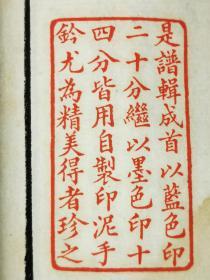 是譜輯成首以藍色印
二十分繼以墨色印十
四分皆用自製印泥手
鈐尤為精美得者珍之